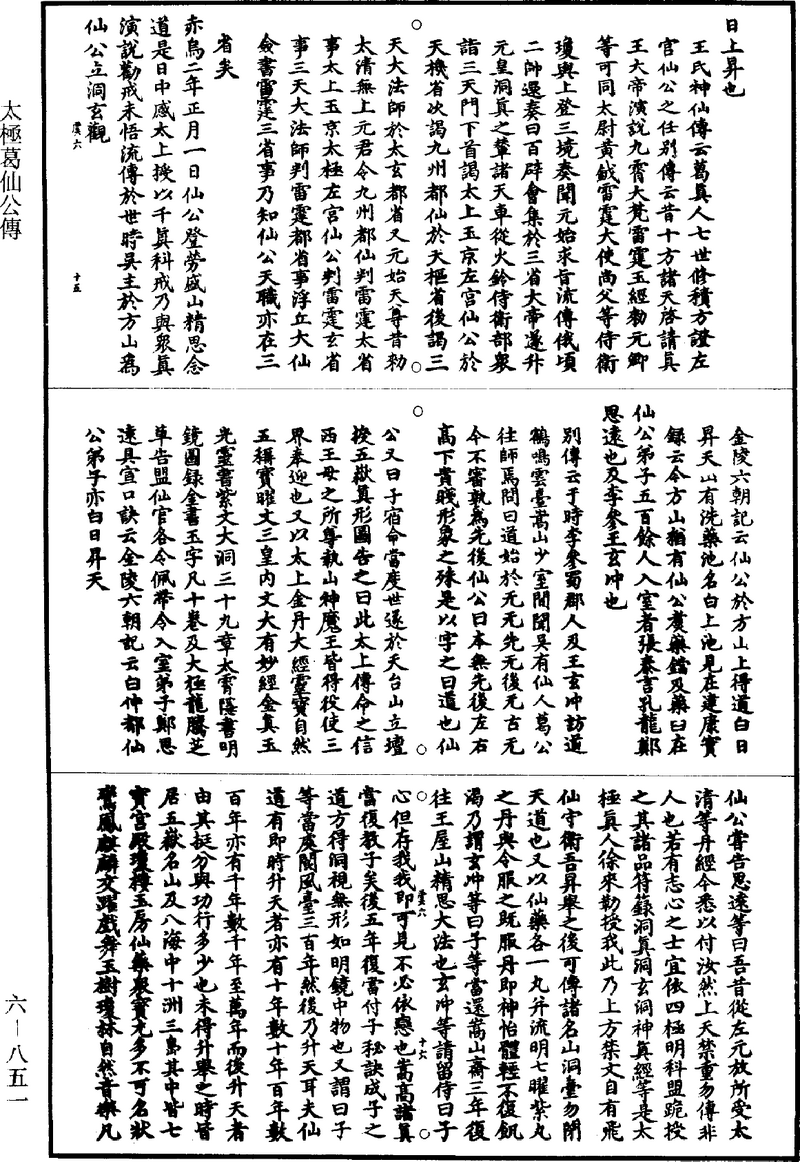 太極葛仙公傳
日上昇也
王氏神仙傳云葛真人七世修積方證左
宮仙公之任別傳云昔十方諸天啓請真
王大帝演說九霄大梵雷霆玉經勑元卿
等可同太尉黃鉞雷霆大使尚父等侍衛
瓊輿上登三境奏聞元始求旨流傳俄頃
二帥還奏曰百辟會集於三省大帝遂升
元皇洞真之輦諸天車從火鈴侍衛部衆
詣三天門下首謁太上玉京左宮仙公於
天機省次謁九州都仙於天樞省後謁三
天大法師於太玄都省又元始天尊昔勑
太清無上元君令九州都仙判雷霆太省
事太上玉京太極左宮仙公判雷霆玄省
事三天大法師判雷霆都省事浮丘大仙
僉書雷霆三省事乃知仙公天職亦在三
省矣
赤烏二年正月一日仙公登勞盛山精思念
道是日中感太上授以千真科戒乃與衆真
演說勸戒未悟流傳於世時吳主於方山為
仙公立洞玄觀
虞六
十五
金陵六朝記云仙公於方山上得道白日
昇天山有洗藥池名白上池見在建康實
錄云今方山猶有仙公煑藥鐺及藥臼在
仙公弟子五百餘人入室者張泰言孔龍鄭
思遠也及李參王玄冲也
別傳云于時李參蜀郡人及王玄冲訪道
鶴鳴雲臺嵩山少室間聞吳有仙人葛公
往師焉問曰道始於无无先元後元古元
今不審孰為先後仙公曰本無先後左右
高下貴賤形象之殊是以字之曰道也仙
公又曰子宿命當度世遂於天台山立壇
授五嶽真形圖告之曰此太上傳命之信
西王母之所尊執山神魔王皆得役使三
界奉迎也又以太上金丹大經靈寶自然
五稱寶曜文三皇內文大有妙經金真玉
光靈書紫文大洞三十九章太霄隱書明
鏡圖錄金書玉字凡十卷及大極龍騰芝
草告盟仙官各令佩帶令入室弟子鄭思
遠具宣口訣云金陵六朝記云白仲都仙
公弟子亦白日昇天
仙公嘗告思遠等曰吾昔從左元放所受太
清等丹經今悉以付汝然上天禁重勿傳非
人也若有志心之士宜依四極明科盟跪授
之其諸品符籙洞真洞玄洞神真經等是太
極真人徐來勒授我此乃上方禁文自有飛
仙守衛吾昇舉之後可傳諸名山洞臺勿閉
天道也又以仙藥各一丸并流明七曜紫丸
之丹與令服之既服丹即神怡體輕不復飢
渴乃謂玄冲等曰子等當還嵩山齋三年復
往王屋山精思大法也玄冲等請留侍曰子
心但存我我即可見不必依戀也嵩高諸真
當復教子矣後五年復當付子秘訣成子之
道方得洞視無形如明鏡中物也又謂曰子
等當度閬風臺三百年然後乃升天耳夫仙
道有即時升天者亦有十年數十年百年數
百年亦有千年數千年至萬年而後升天者
由其挺分與功行多少也未得升舉之時皆
居五嶽名山及八海中十洲三島其中皆七
寶宮殿瓊樓玉房仙藥衆寶尤多不可名狀
鸞鳳麒麟交躍戲舞玉樹瓊林自然音樂凡
虞六
十六
六－八五一